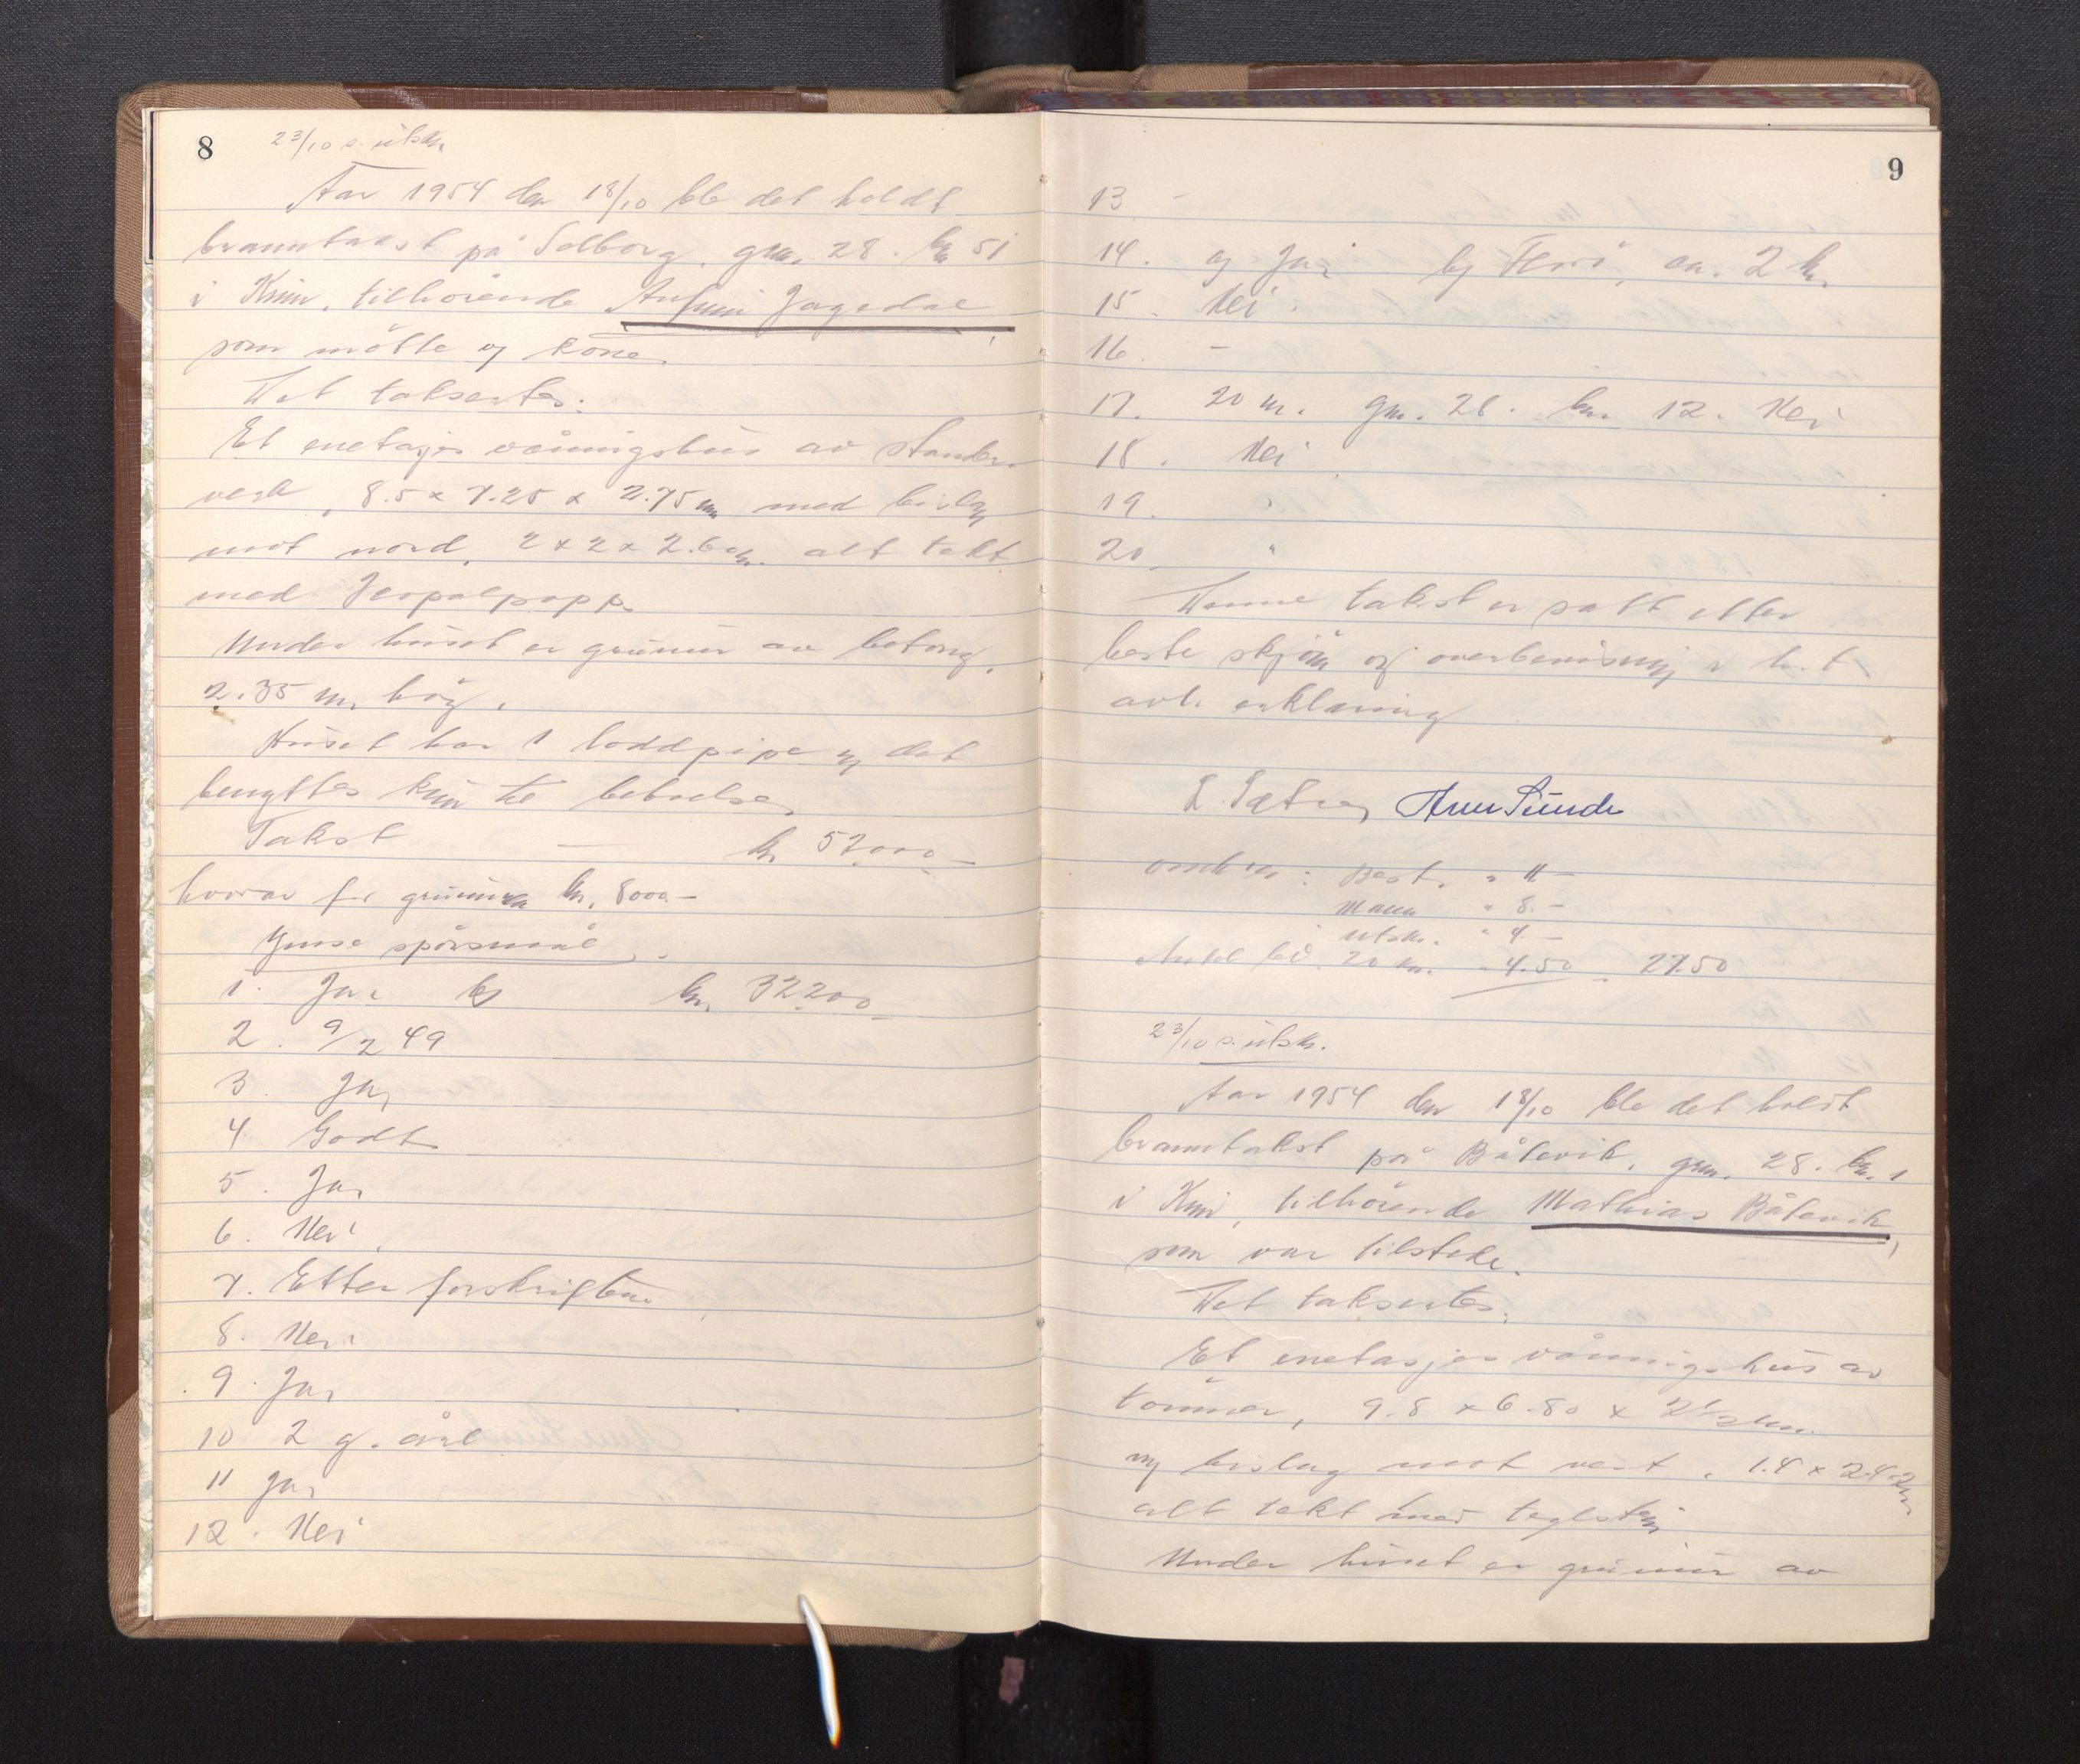 8
23/10 s. utskr.
Aar 1954 den 18/10 ble det holdt
branntakst på Solborg, gnr. 28. bnr 51
i Kinn, tilhørende Jagedal
som møtte og kone.
Det taksertes:
Et enetasjes våningshus av stender
verk, 8.5 x 7.25 x 2.75 m med bislag
mot nord, 2 x 2 x 2.6 m. alt tekt
med papp.
Under huset er grunnmur av betong,
2.35 m. høg.
Huset har 1 loddpipe og det
benyttes kun til beboelse.
Takst — kr 57000.-
hvorav for grunnmuren kr. 8000.-
Ymse spörsmål:
1. Ja, kr. 32200.-
2. 9/2 49
3. Ja,
4 Godt
5. Ja,
6. Nei.
7. Etter forskriftene
8. Nei.
9. Ja,
10 2 g. året
11 Ja,
12. Nei
9
13 -
14. og Ja, ca. 2 k.
15. Nei.
16. -
17. 20 m. gnr. 28. bnr. 12. Nei
18. Nei
19. "
20. "
Denne takst er satt etter
beste skjøn og overbevisning i h.t.
avl. erklæring
L. Sætren Arne Sunde
omkr: Best. " 11 -
Mann " 8. -
utskr. " 4 -
Antel bil. 20 km. " 4.50 " 27.50
23/10 s. utskr.
Aar 1954 den 18/10 ble det holdt
branntakst på Båtevik, gnr. 28. bnr. 1
i Kinn, tilhørende Mathias Båtevik,
som var tilstede.
Det taksertes:
Et enetasjes våningshus av
tömmer, 9.8 x 6.80 x 2 1/2 m.
og bislag mot vest, 1.4 x 2.4 x 2 m
alt tekt med teglstein
Under huset er grunnmur av